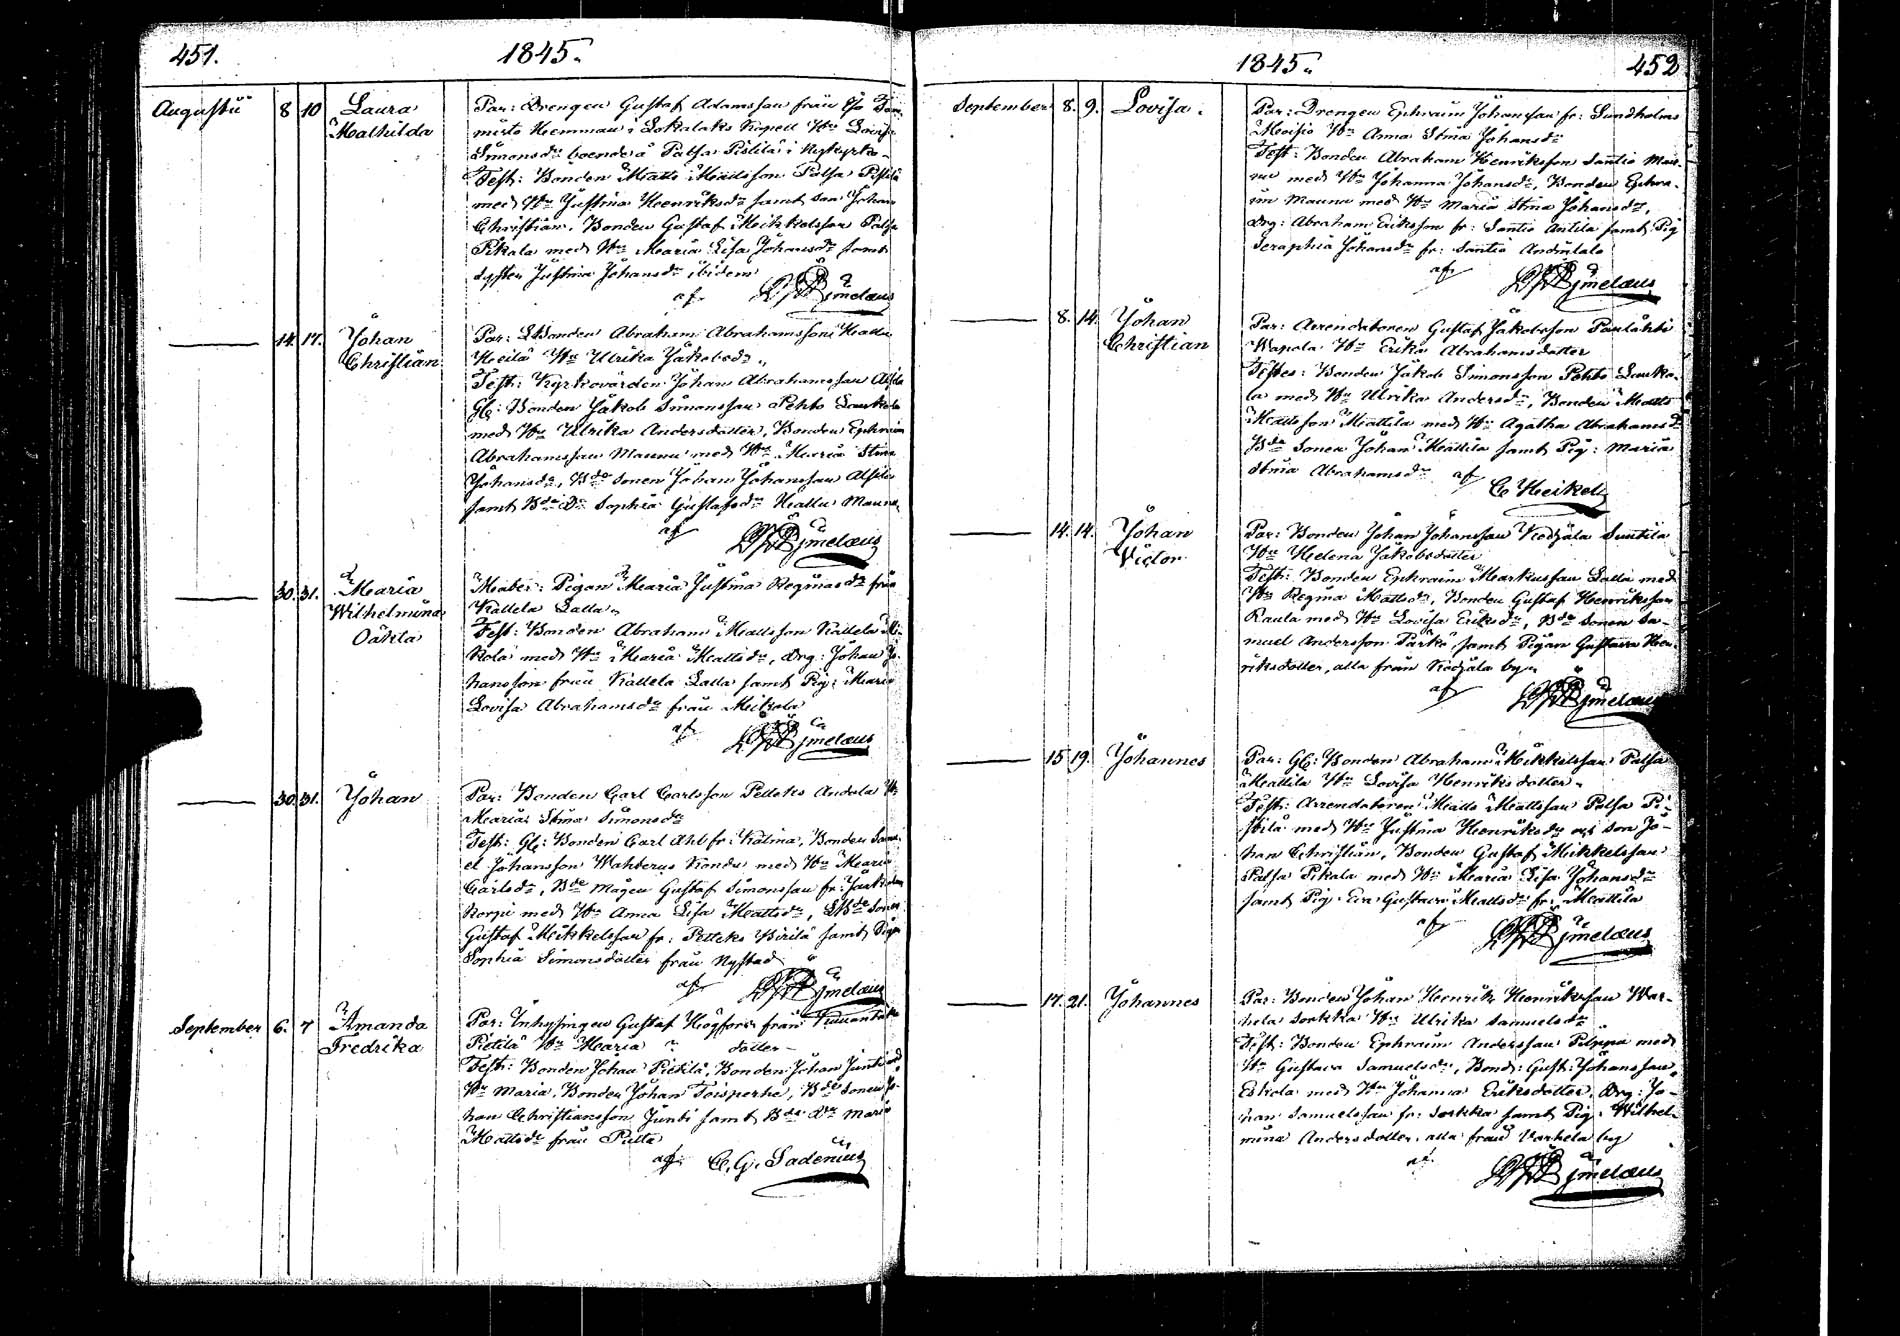 451. 1845.
Augusti 8 10 Laura Mathilda
Par: Drengen Gustaf Adamsson från
misto Hemman i Lokalaks Kapell Hu Lovisa
Simonsdr boende å Palsa Pistilä i Nykyrko
Test: Bonden Matts Mattsson Palsa Pistilä
med Hu Justina Henriksdr samt son Johan
Christian, Bonden Gustaf Mickelsson Palsa
Pikala med Hu Maria Lisa Johansdr samt
syster Justina Johansdr ibidem
af
14. 17. Johan Christian
Par: Bonden Abraham Abrahamsson Hallu
Heilä Hu Ulrika Jakobsdr
Test: Kyrkovärden Johan Abrahamsson
Gl: Bonden Jakob Simonsson Pehto Laukola
med Hu Ulrika Andersdotter, Bonden Ephraim
Abrahamsson Maunu med Hu Maria Stina
Johansdr, Bde Sonen Johan Johansson
samt Bde Dr Sophia Gustafsdr Hallu Maunu
af
30. 31. Maria Wilhelmina
Maber: Pigan Maria Justina Reginasdr från
Kallela Lalla
Test: Bonden Abraham Mattsson Kallela Mi-
kola med Hu Maria Mattsdr, Drg: Johan Jo-
hansson från Kallela Lalla samt Pig: Maria
Lovisa Abrahamsdr från Mikola
af
30. 31. Johan
Par: Bonden Carl Carlsson Palleks Andola Hu
Maria Stina Simonsdr
Test: Gl: Bonden Carl Ahl fr: Kolina, Bonden Samu-
el Johansson Wahterus Kondu med Hu Maria
Carlsdr, Bde Mågen Gustaf Simonsson fr:
Korpi med Hu Anna Lisa Mattsdr, Bde Sonen
Gustaf Mickelsson fr: Pelleks Wirilä samt Pigan
Sophia Simonsdotter från Nystad
af
September 6. 7 Amanda Fredrika
Par: Inhysingen Gustaf Högfors från
Pietilä Hu Maria dotter
Test: Bonden Johan Pietilä, Bonden Johan Junti med
Hu Maria, Bonden Johan Toisperhe, Bde Sonen Jo-
han Christiansson Junti samt Bde Dr Maria
Mattsdr från Putta
af C. G. Sadenius
1845. 452
September 8. 9. Lovisa.
Par: Drengen Ephraim Johansson fr: Sundholms
Moisio Hu Anna Stina Johansdr
Test: Bonden Abraham Henriksson Santio Mau-
nu med Hu Johanna Johansdr, Bonden Ephra-
im Maunu med Hu Maria Stina Johansdr,
Drg: Abraham Eriksson fr: Santio Antila samt Pig
Seraphia Johansdr fr: Santio Andintalo
af
8. 14. Johan Christian
Par: Arrendatoren Gustaf Jakobsson
Wapola Hu Erika Abrahamsdotter
Testes: Bonden Jakob Simonsson Pehto Lauko-
la med Hu Ulrika Andersdr, Bonden Matts
Mattsson Mattila med Hu Agatha Abrahamsdr
Bde Sonen Johan Mattila samt Pig: Maria
Stina Abrahamsdr af C Heikel
14. 14. Johan Victor
Par: Bonden Johan Johansson Kodjala Suutila
Hu Helena Jakobsdotter
Test: Bonden Ephraim Markusson Lalla med
Hu Regina Mattsdr, Bonden Gustaf Henriksson
Raula med Hu Lovisa Eriksdr, Bde Sonen Sa-
muel Andersson Pärkö, samt Pigan Gustava Hen-
riksdotter, alla från Kodjala by
af
15 19. Johannes
Par: Gl: Bonden Abraham Mickelsson Palsa
Mattila Hu Lovisa Henriksdotter
Test: Arrendatoren Matts Mattsson Palsa Pi-
stilä med Hu Justina Henriksdr och Son Jo-
han Christian, Bonden Gustaf Mickelsson
Palsa Pikala med Hu Maria Lisa Johansdr
samt Pig. Eva Gustava Mattsdr fr: Mattila
af
17. 21. Johannes
Par: Bonden Johan Henrik Henriksson War-
hela Sorkka Hu Ulrika Samuelsdr
Test: Bonden Ephraim Andersson Pilppa med
Hu Gustava Samuelsdr, Bond: Gust: Johansson
Eskola med Hu Johanna Eriksdotter, Drg: Jo-
han Samuelsson fr: Sorkka samt Pig: Wilhel-
mina Andersdotter, alla från Varhela by
af